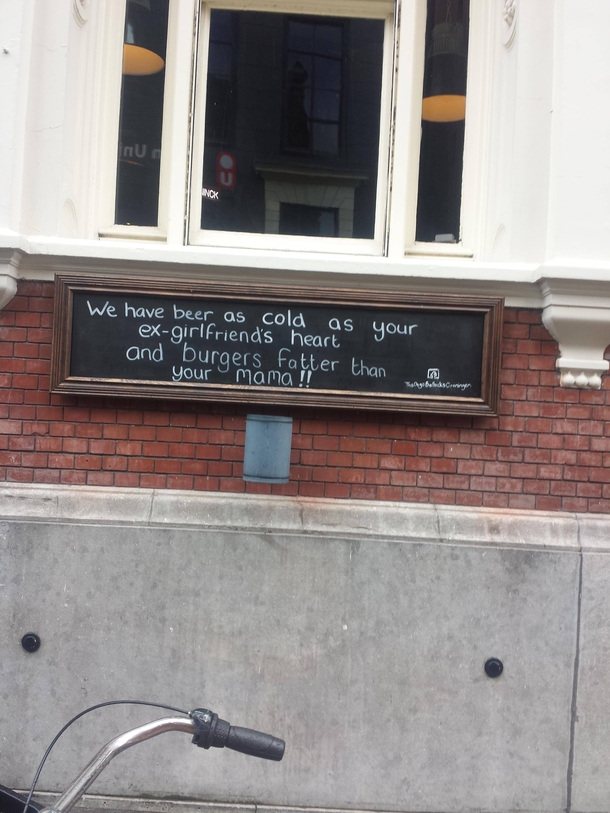 INCK
We have beer as cold as your
ex-girlfriend's heart
and burgers fatter than
your mama!!
TheDogsBollocksGroningen